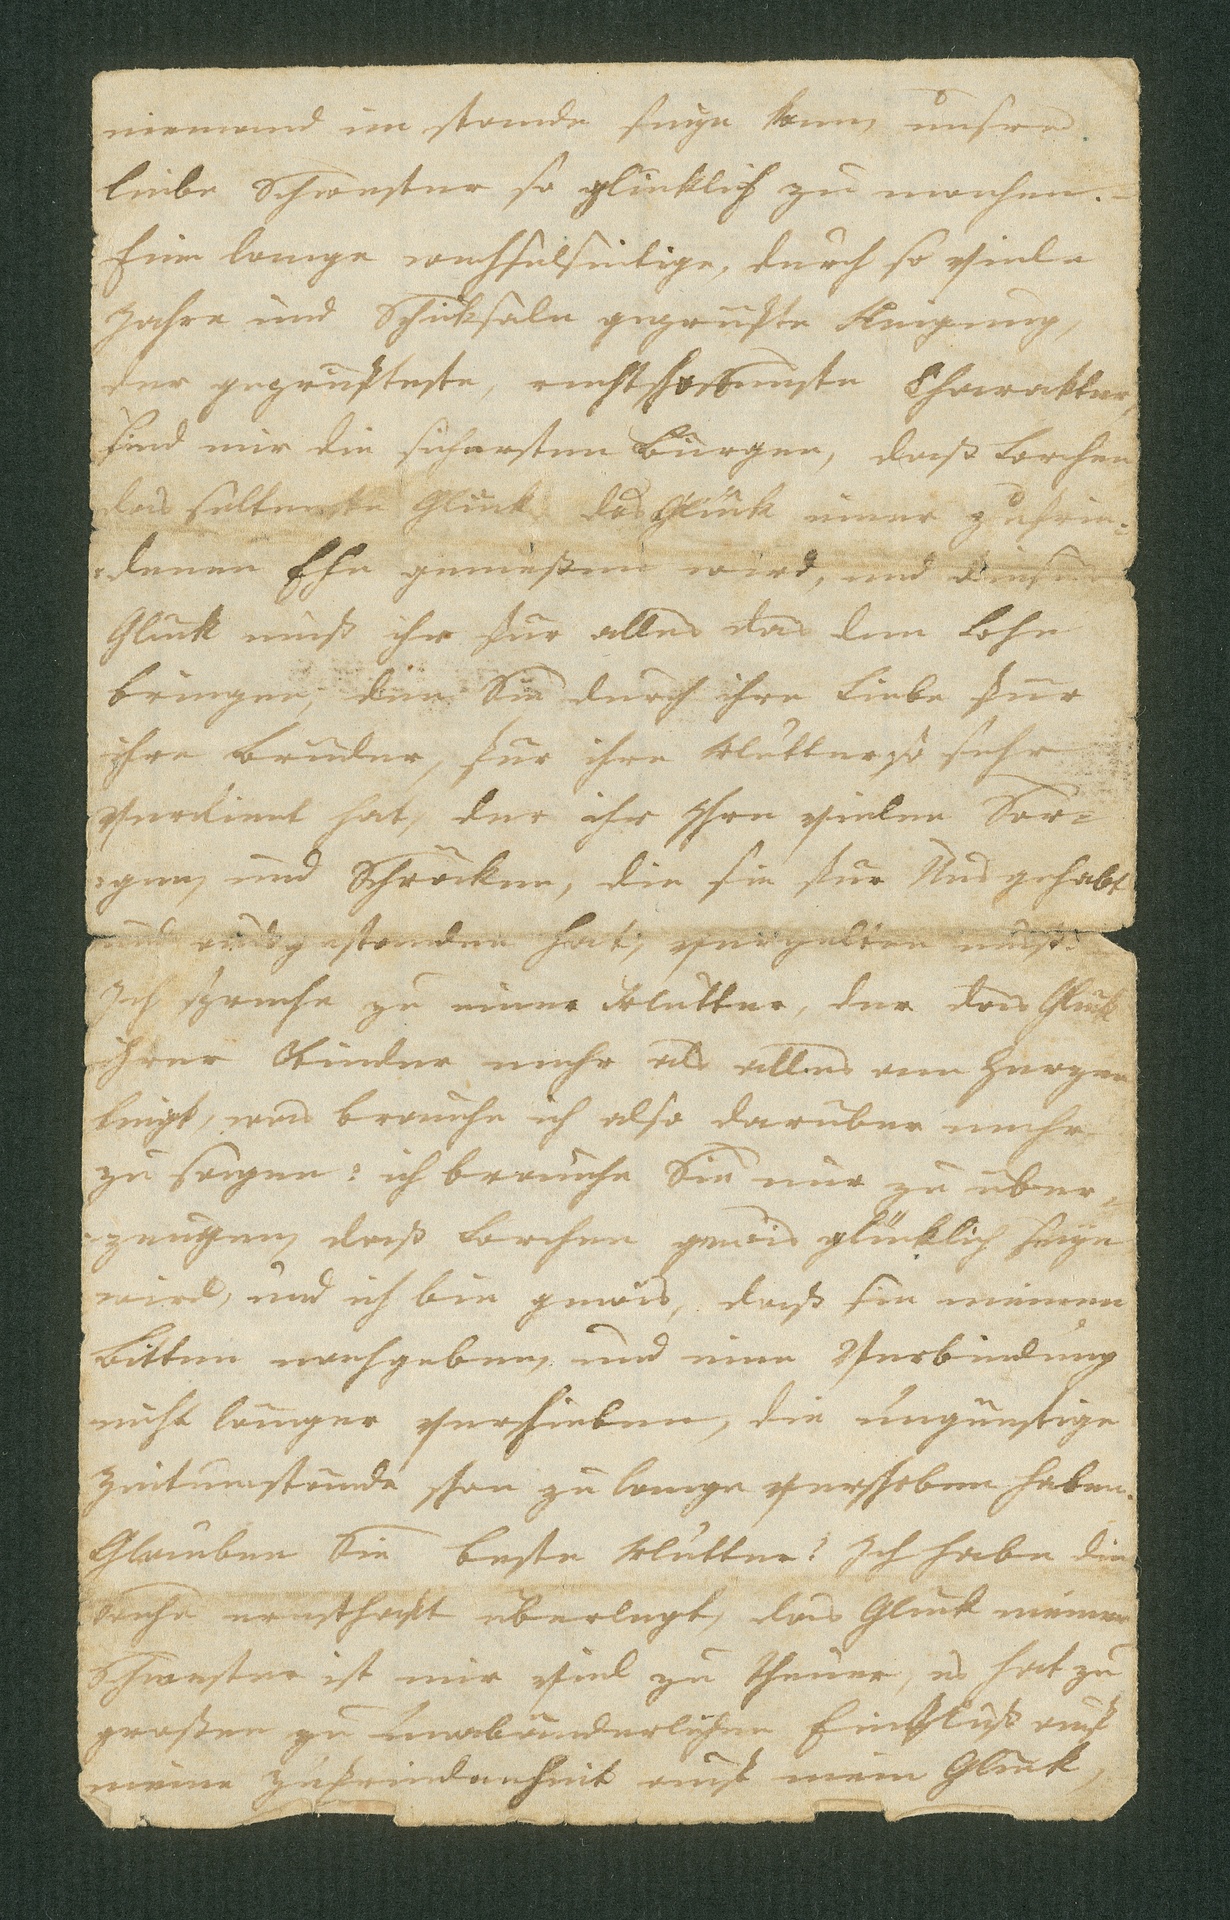 niemand im stande seyn kann, unsere
liebe Schwester so glücklich zu machen. –
Eine lange wechselseitige, durch so viele
Jahre und Schiksale geprüfte Neigung,
der geprüfteste, rechtschaffenste Charakter,
sind mir die sichersten Bürgen, daß Lorchen
das seltenste Glück das Glük einer zufrie-
denen Ehe genießen wird, und dieses
Glück muß ihr für alles das den Lohn
bringen, den Sie durch ihre Liebe für
ihre Brüder, für ihre Mutter so sehr
verdient hat, der ihr Ihre vielen Sor-
gen, und Schröcken, die sie für Uns gehabt
und ausgestanden hat, vergelten muß.
Ich spreche zu einer Mutter, der das Glük
ihrer Kinder mehr als alles am Herzen
liegt, was brauche ich also darüber mehr
zu sagen: ich brauche Sie nur zu über-
zeugen, daß Lorchen gewis glücklich seyn
wird, und ich bin gewis, daß sie meinen
Bitten nachgeben, und eine Verbindung
nicht länger verschieben, die ungünstige
Zeitumstände schon zu lange verschoben haben.
Glauben Sie beste Mutter! Ich habe die
Sache ernsthaft überlegt, das Glück meiner
Schwester ist mir viel zu theuer, es hat zu
großen zu unabänderlichen Einfluß auf
meine Zufriedenheit auf mein Glück,